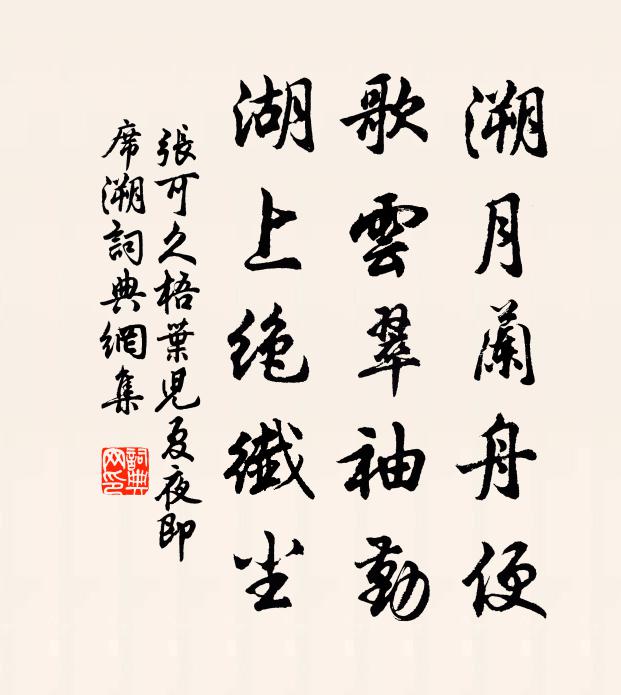 溯月蘭舟便
歌雲翠袖勤
湖上絶纖尘
張可久梧葉児夏夜即
席溯詞典網集
詞典网印